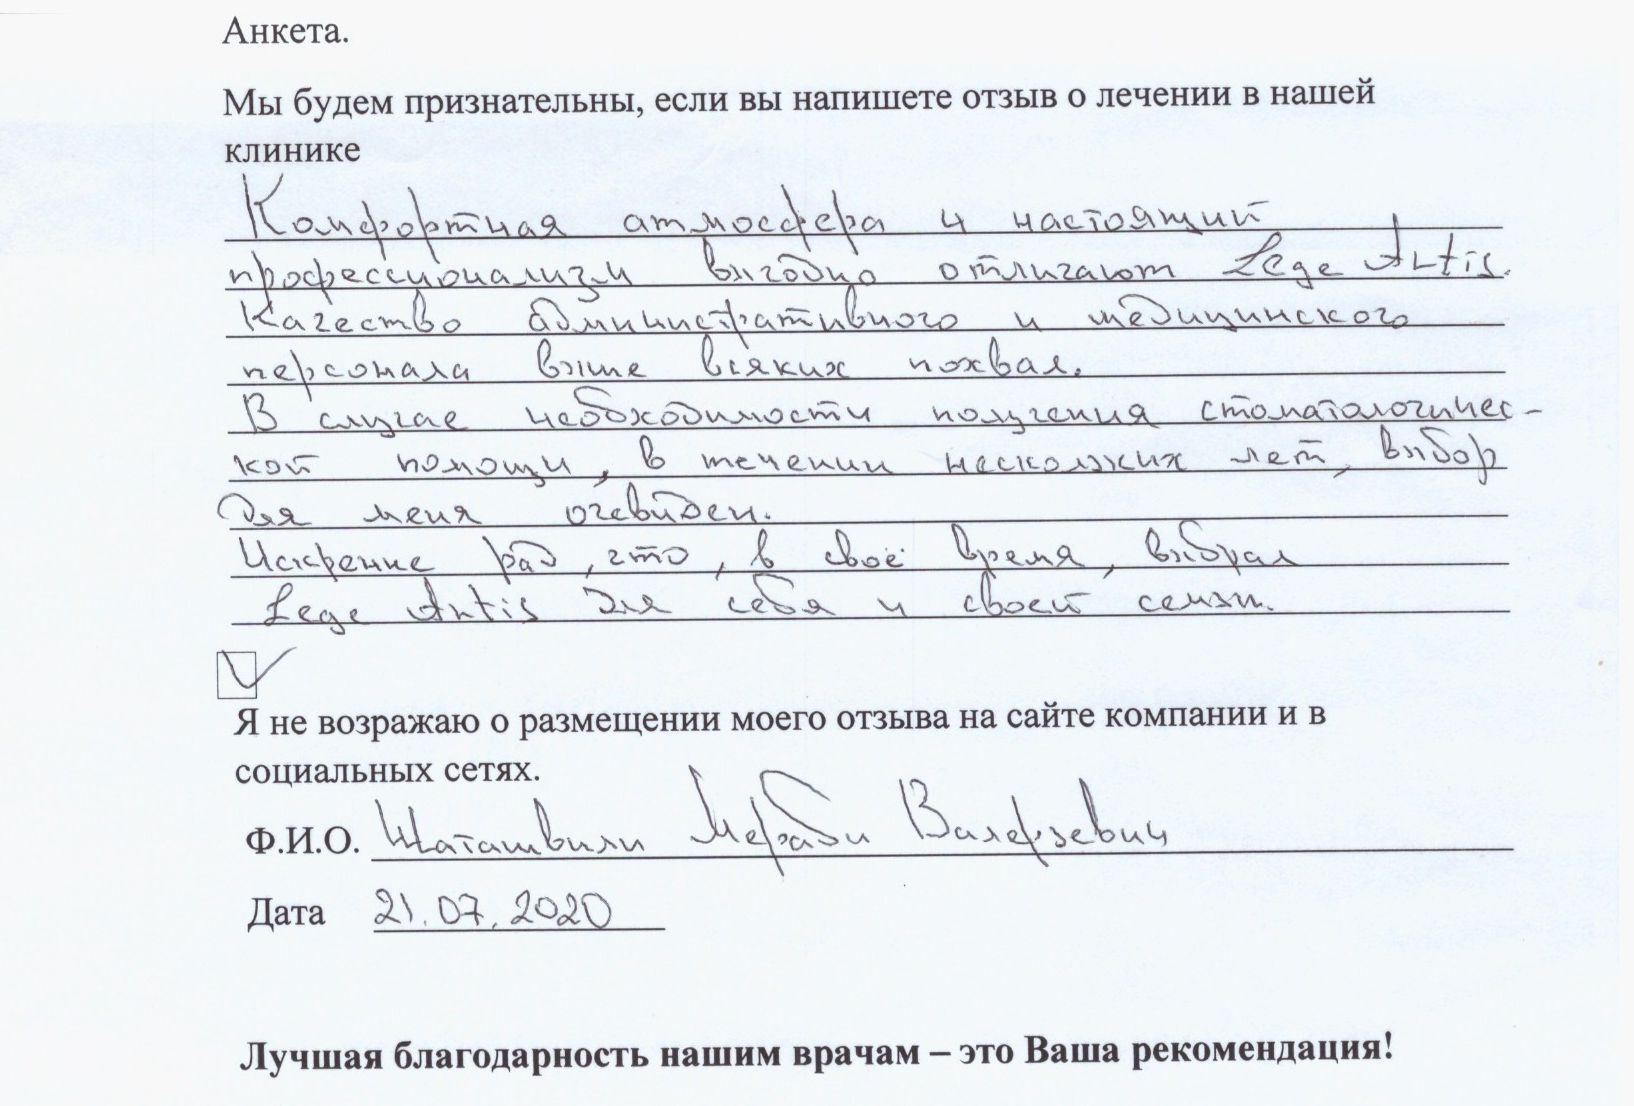 Анкета.
Мы будем признательны, если вы напишете отзыв о лечении в нашей
клинике
Комфортная атмосфера и настоящий
профессионализм выгодно отличают Lege Artis.
Качество административного и медицинского
персонала выше всяких похвал.
В случае необходимости получения стоматологичес-
кой помощи, в течении нескольких лет, выбор
для меня очевиден.
Искренне рад, что, в своё время, выбрал
Lege Artis для себя и своей семьи.
Я не возражаю о размещении моего отзыва на сайте компании и в
социальных сетях.
Ф.И.О. Шаташвили Мераби Валерьевич
Дата 21.07.2020
Лучшая благодарность нашим врачам – это Ваша рекомендация!